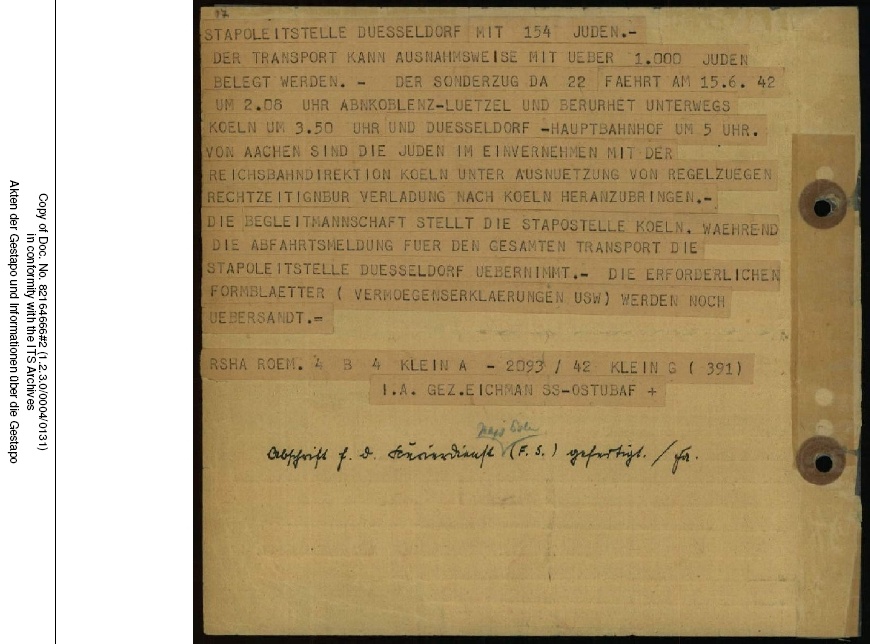 STAPOLEITSTELLE DUESSELDORF MIT 154 JUDEN.-
DER TRANSPORT KANN AUSNAHMSWEISE MIT UEBER 1.000 JUDEN
BELEGT WERDEN. - DER SONDERZUG DA 22 FAEHRT AM 15.6. 42
UM 2.08 UHR ABNKOBLENZ-LUETZEL UND BERURHET UNTERWEGS
KOELN UM 3.50 UHR UND DUESSELDORF -HAUPTBAHNHOF UM 5 UHR.
VON AACHEN SIND DIE JUDEN IM EINVERNEHMEN MIT DER
REICHSBAHNDIREKTION KOELN UNTER AUSNUETZUNG VON REGELZUEGEN
RECHTZEITIGNBUR VERLADUNG NACH KOELN HERANZUBRINGEN.-
DIE BEGLEITMANNSCHAFT STELLT DIE STAPOSTELLE KOELN. WAEHREND
DIE ABFAHRTSMELDUNG FUER DEN GESAMTEN TRANSPORT DIE
STAPOLEITSTELLE DUESSELDORF UEBERNIMMT.- DIE ERFORDERLICHEN
FORMBLAETTER ( VERMOEGENSERKLAERUNGEN USW) WERDEN NOCH
UEBERSANDT.=
RSHA ROEM. 4 B 4 KLEIN A - 2093 / 42 KLEIN G ( 391)
I.A. GEZ.EICHMAN SS-OSTUBAF +
Abschrift f. d. Kurierdienst (F. S.) gefertigt. /
Copy of Doc. No. 82164566#2 (1.2.3.0/0004/0131)
in conformity with the ITS Archives
Akten der Gestapo und Informationen über die Gestapo